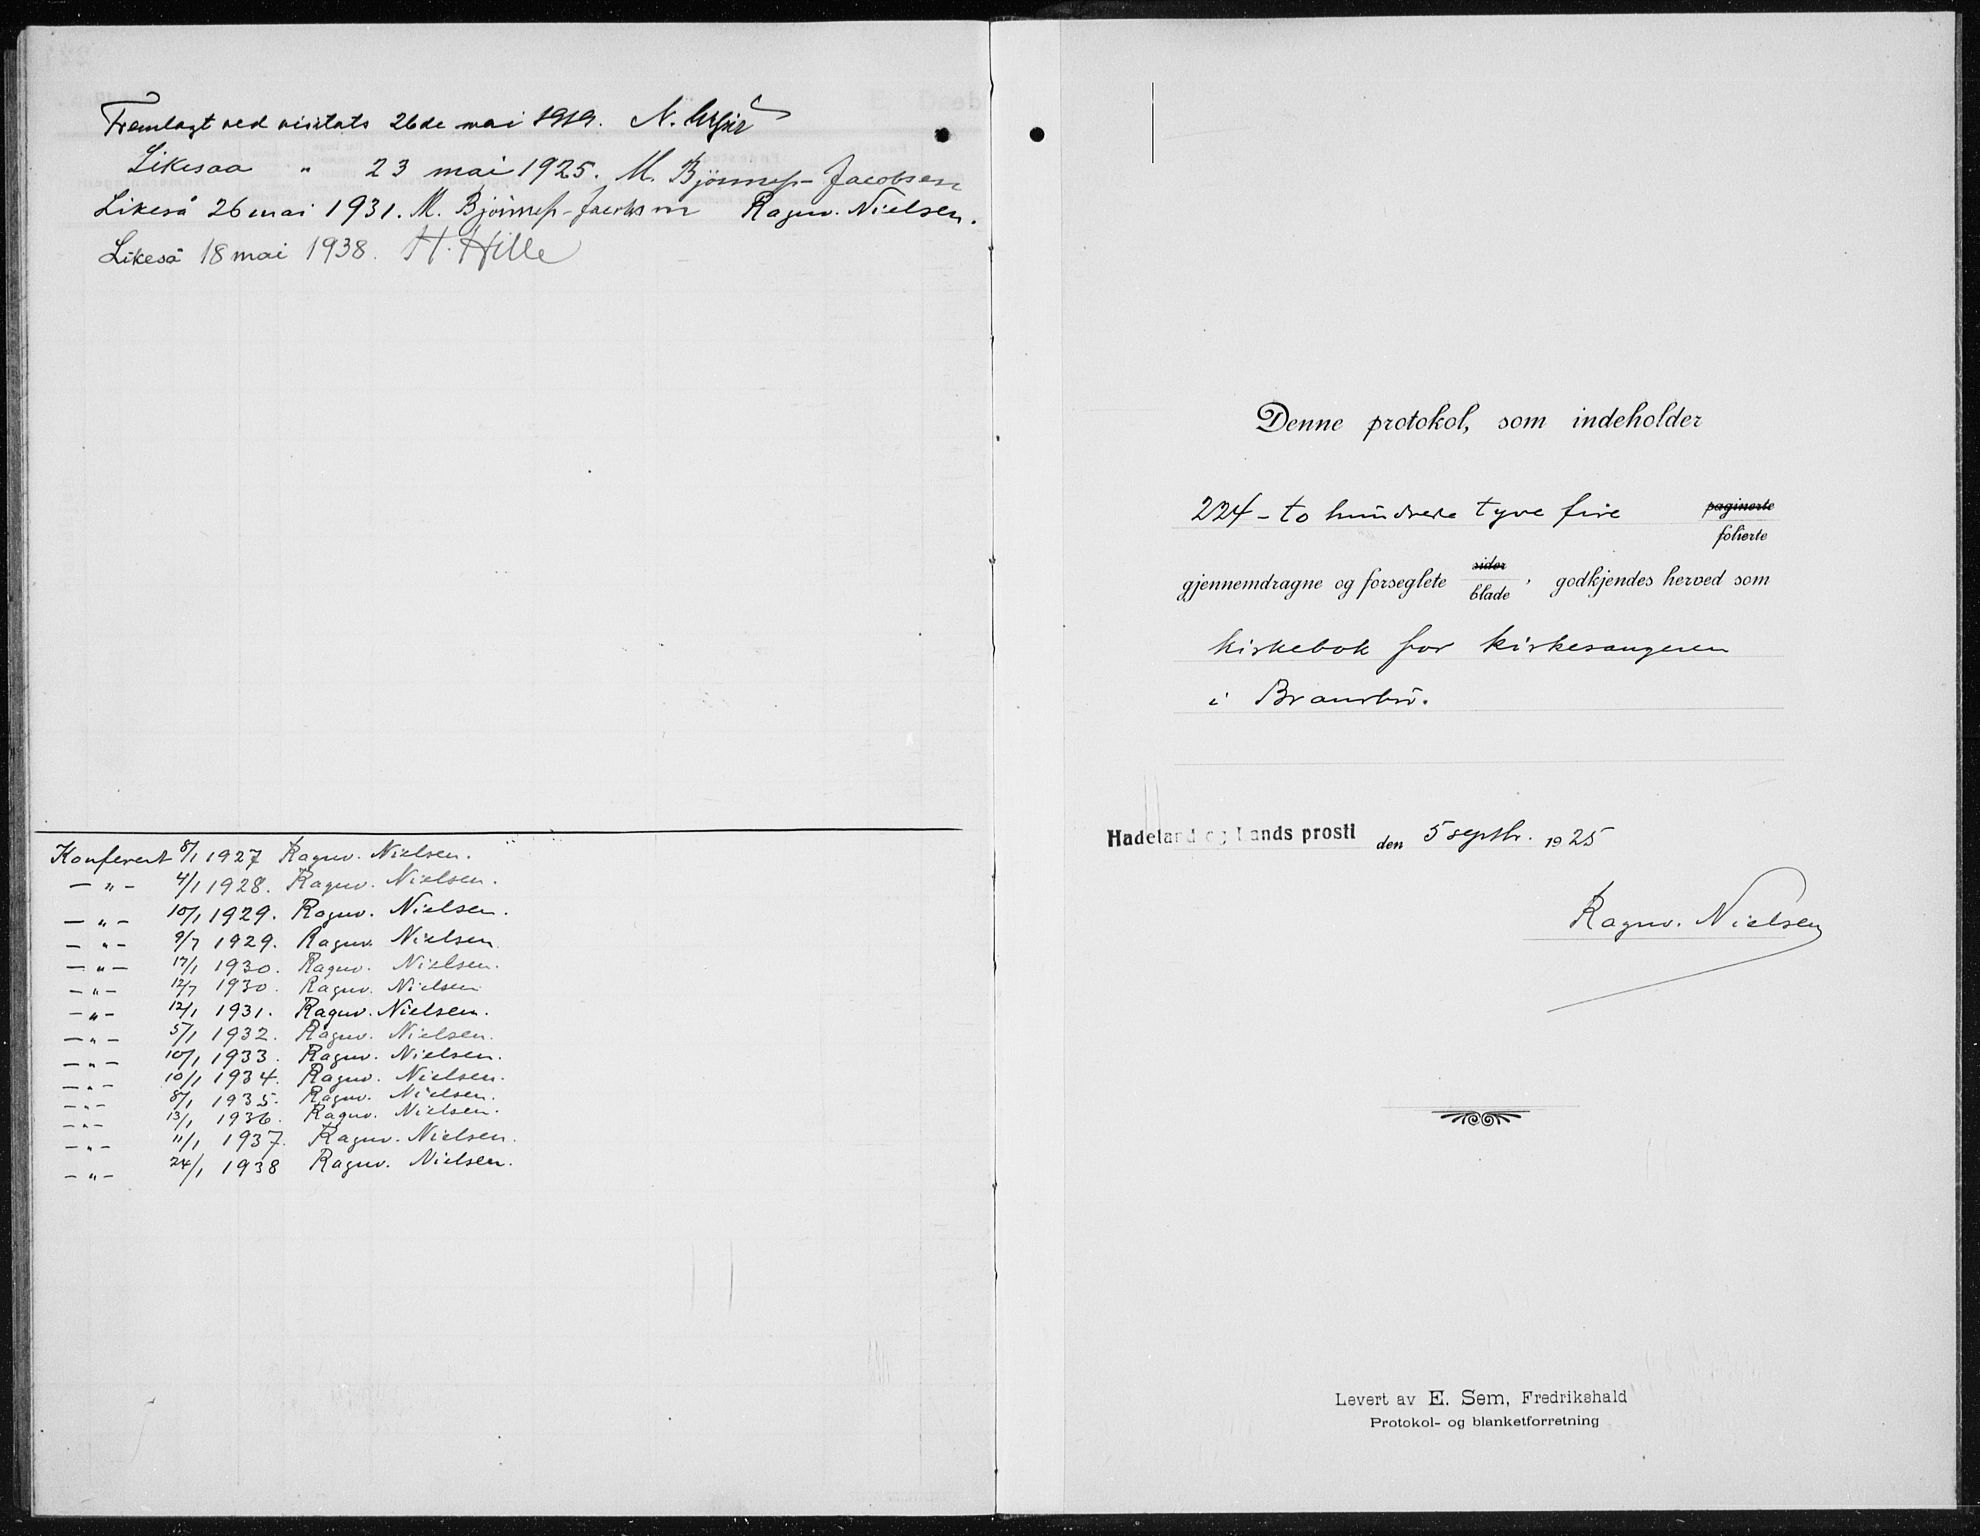 Fremlagt ved visitats 26de mai 1919. N.
Likesaa " 23 mai 1925. M. Bjønnes-Jacobsen
Likeså 26 mai 1931. M. Bjønnes-Jacobsen Ragnv. Nielsen.
Likeså 18 mai 1938. H. Hille
Konferert 8/1 1927 Ragnv. Nielsen.
— " — 4/1 1928. Ragnv. Nielsen.
— " — 10/1 1929. Ragnv. Nielsen.
— " — 9/7 1929. Ragnv. Nielsen.
— " — 17/1 1930. Ragnv. Nielsen.
— " — 12/7 1930. Ragnv. Nielsen
— " — 12/1 1931. Ragnv. Nielsen.
— " — 5/1 1932. Ragnv. Nielsen.
— " — 10/1 1933. Ragnv. Nielsen.
— " — 10/1 1934. Ragnv. Nielsen.
— " — 8/1 1935. Ragnv. Nielsen.
— " — 13/1 1936. Ragnv. Nielsen.
— " — 11/1 1937. Ragnv. Nielsen.
— " — 24/1 1938 Ragnv. Nielsen.
Denne protokol, som indeholder
224 - to hundrede tyve fire paginerte
folierte
gjennemdragne og forseglete sider
blade, godkjendes herved som
kirkebok for kirkesangeren
i Brandbu.
Hadeland og Lands prosti den 5 septbr. 1925
Ragnv. Nielsen
Levert av E. Sem, Fredrikshald
Protokol- og blanketforretning